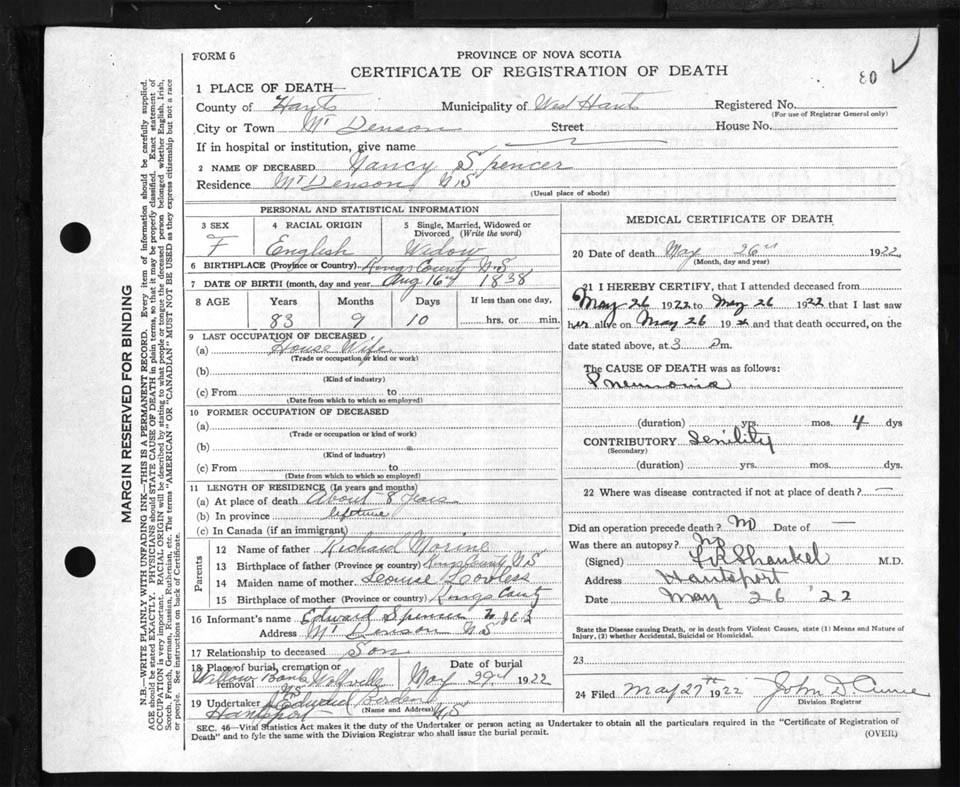 FORM 6
PROVINCE OF NOVA SCOTIA
CERTIFICATE OF REGISTRATION OF DEATH
80
1 PLACE OF DEATH—
County of Hants Municipality of West Hants Registered No.
(For use of Registrar General only)
City or Town Mt Denson Street House No.
If in hospital or institution, give name
2 NAME OF DECEASED Nancy Spencer
Residence Mt Denson N.S
(Usual place of abode)
PERSONAL AND STATISTICAL INFORMATION
3 SEX 4 RACIAL ORIGIN 5 Single, Married, Widowed or Divorced (Write the word)
F English Widow
6 BIRTHPLACE (Province or Country) Kings County N.S
7 DATE OF BIRTH (month, day and year) Aug 16th 1838
8 AGE Years Months Days If less than one day,
83 9 10 hrs. or min.
9 LAST OCCUPATION OF DECEASED
(a) House Wife
(Trade or occupation or kind of work)
(b)
(Kind of industry)
(c) From to
(Date from which to which so employed)
10 FORMER OCCUPATION OF DECEASED
(a)
(Trade or occupation or kind of work)
(b)
(Kind of industry)
(c) From to
(Date from which to which so employed)
11 LENGTH OF RESIDENCE (In years and months)
(a) At place of death About 8 Years
(b) In province lifetime
(c) In Canada (if an immigrant)
Parents
12 Name of father Richard Morine
13 Birthplace of father (Province or country) Kings County N.S
14 Maiden name of mother Louise
15 Birthplace of mother (Province or country) Kings County
16 Informant's name Edward Spencer
Address Mt Denson N.S
17 Relationship to deceased Son
18 Place of burial, cremation or removal Willow Bank Wolfville N.S Date of burial May 29 1922
19 Undertaker
(Name and Address)
Hantsport N.S
MEDICAL CERTIFICATE OF DEATH
20 Date of death May 26 1922
(Month, day and year)
21 I HEREBY CERTIFY, that I attended deceased from
May 26 1922 to May 26 1922 that I last saw
her alive on May 26 19 and that death occurred, on the
date stated above, at 3 Pm.
The CAUSE OF DEATH was as follows:
Pneumonia
(duration) yrs. mos. 4 dys
CONTRIBUTORY Senility
(Secondary)
(duration) yrs. mos. dys.
22 Where was disease contracted if not at place of death? —
Did an operation precede death? No Date of —
Was there an autopsy? No
(Signed) Shankel M.D.
Address Hantsport
Date May 26 '22
State the Disease causing Death, or in death from Violent Causes, state (1) Means and Nature of
Injury, (2) whether Accidental, Suicidal or Homicidal.
23
24 Filed May 27th 1922 John D.
Division Registrar
SEC. 46—Vital Statistics Act makes it the duty of the Undertaker or person acting as Undertaker to obtain all the particulars required in the "Certificate of Registration of
Death" and to fyle the same with the Division Registrar who shall issue the burial permit.
(OVER)
MARGIN RESERVED FOR BINDING
N.B.—WRITE PLAINLY WITH UNFADING INK—THIS IS A PERMANENT RECORD. Every item of information should be carefully supplied.
AGE should be stated EXACTLY. PHYSICIANS should STATE CAUSE OF DEATH in plain terms, so that it may be properly classified. Exact statement of
OCCUPATION is very important. RACIAL ORIGIN will be described by stating to what people or tongue the deceased person belonged whether English, Irish,
Scotch, French, German, Russian, Ruthenian, etc. The terms "AMERICAN" or "CANADIAN" MUST NOT BE USED as they express citizenship but not a race
or people. See instructions on back of Certificate.